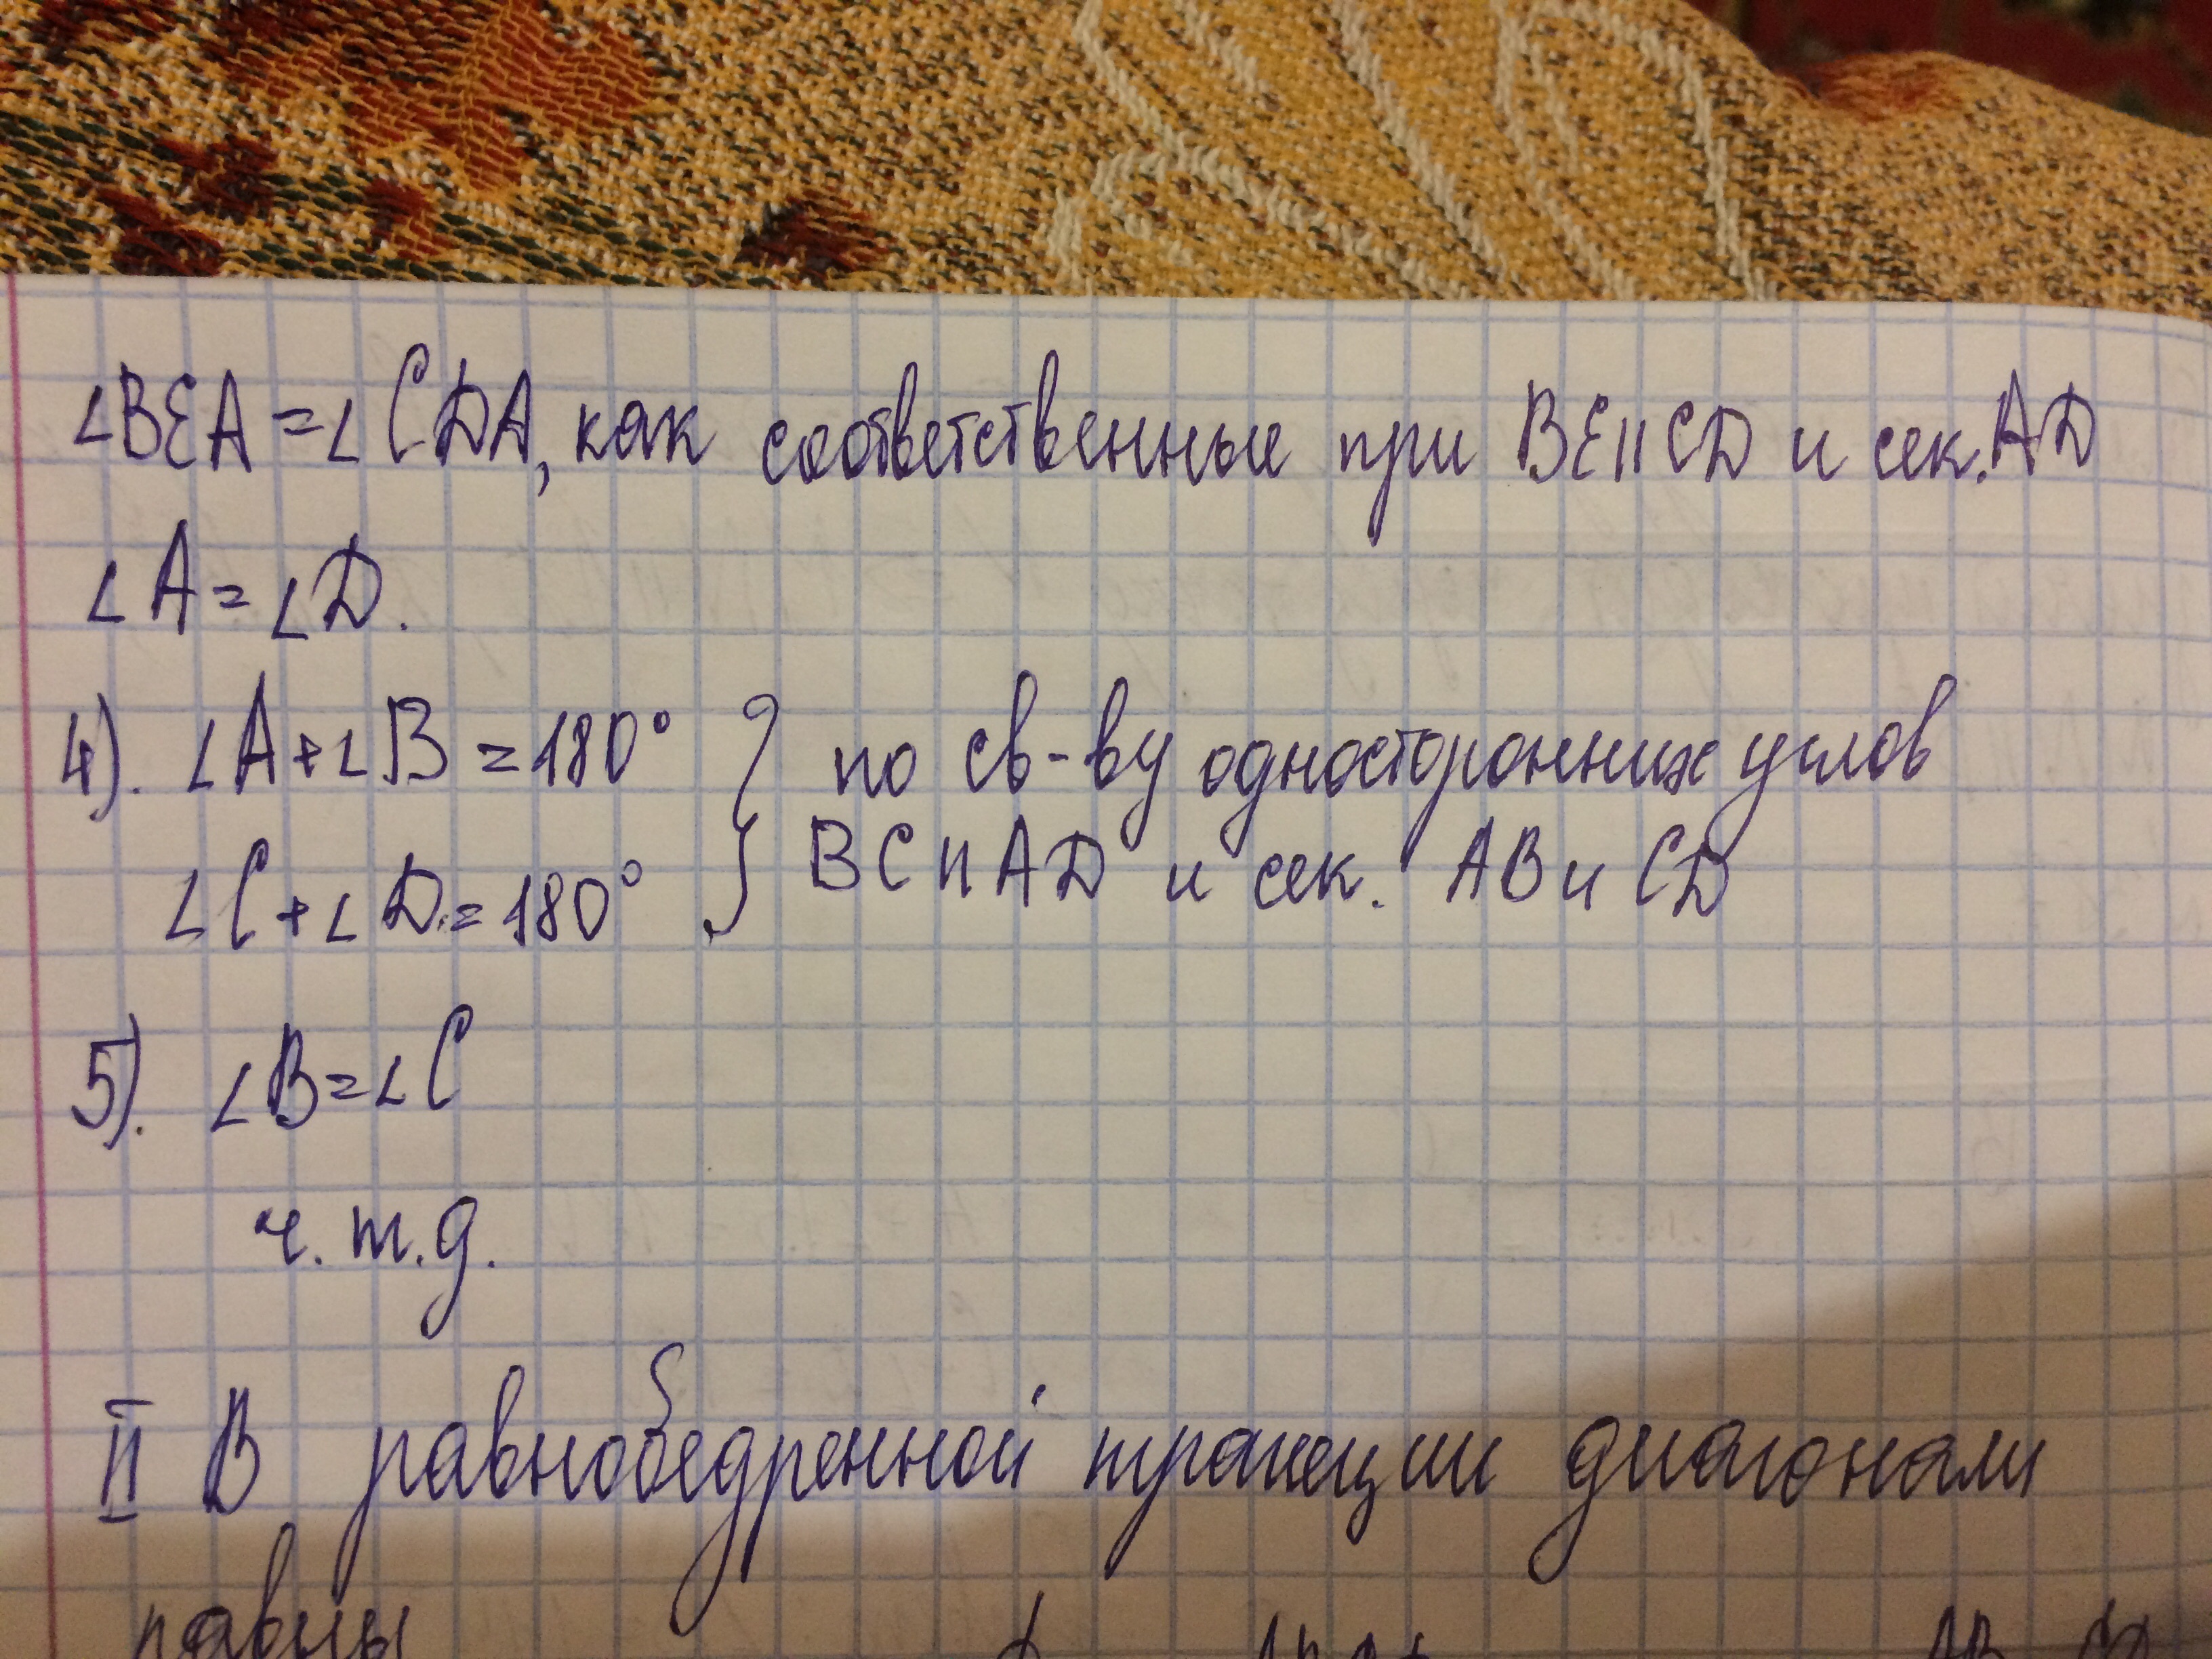 ∠BEA = ∠CDA, как соответственные при BE||CD и сек. AD
∠A = ∠D.
4). ∠A + ∠B = 180° } по св-ву односторонних углов
∠C + ∠D = 180° } BC || AD и сек. AB и CD
5). ∠B = ∠C
ч. т. д.
II В равнобедренной трапеции диагонали
равны